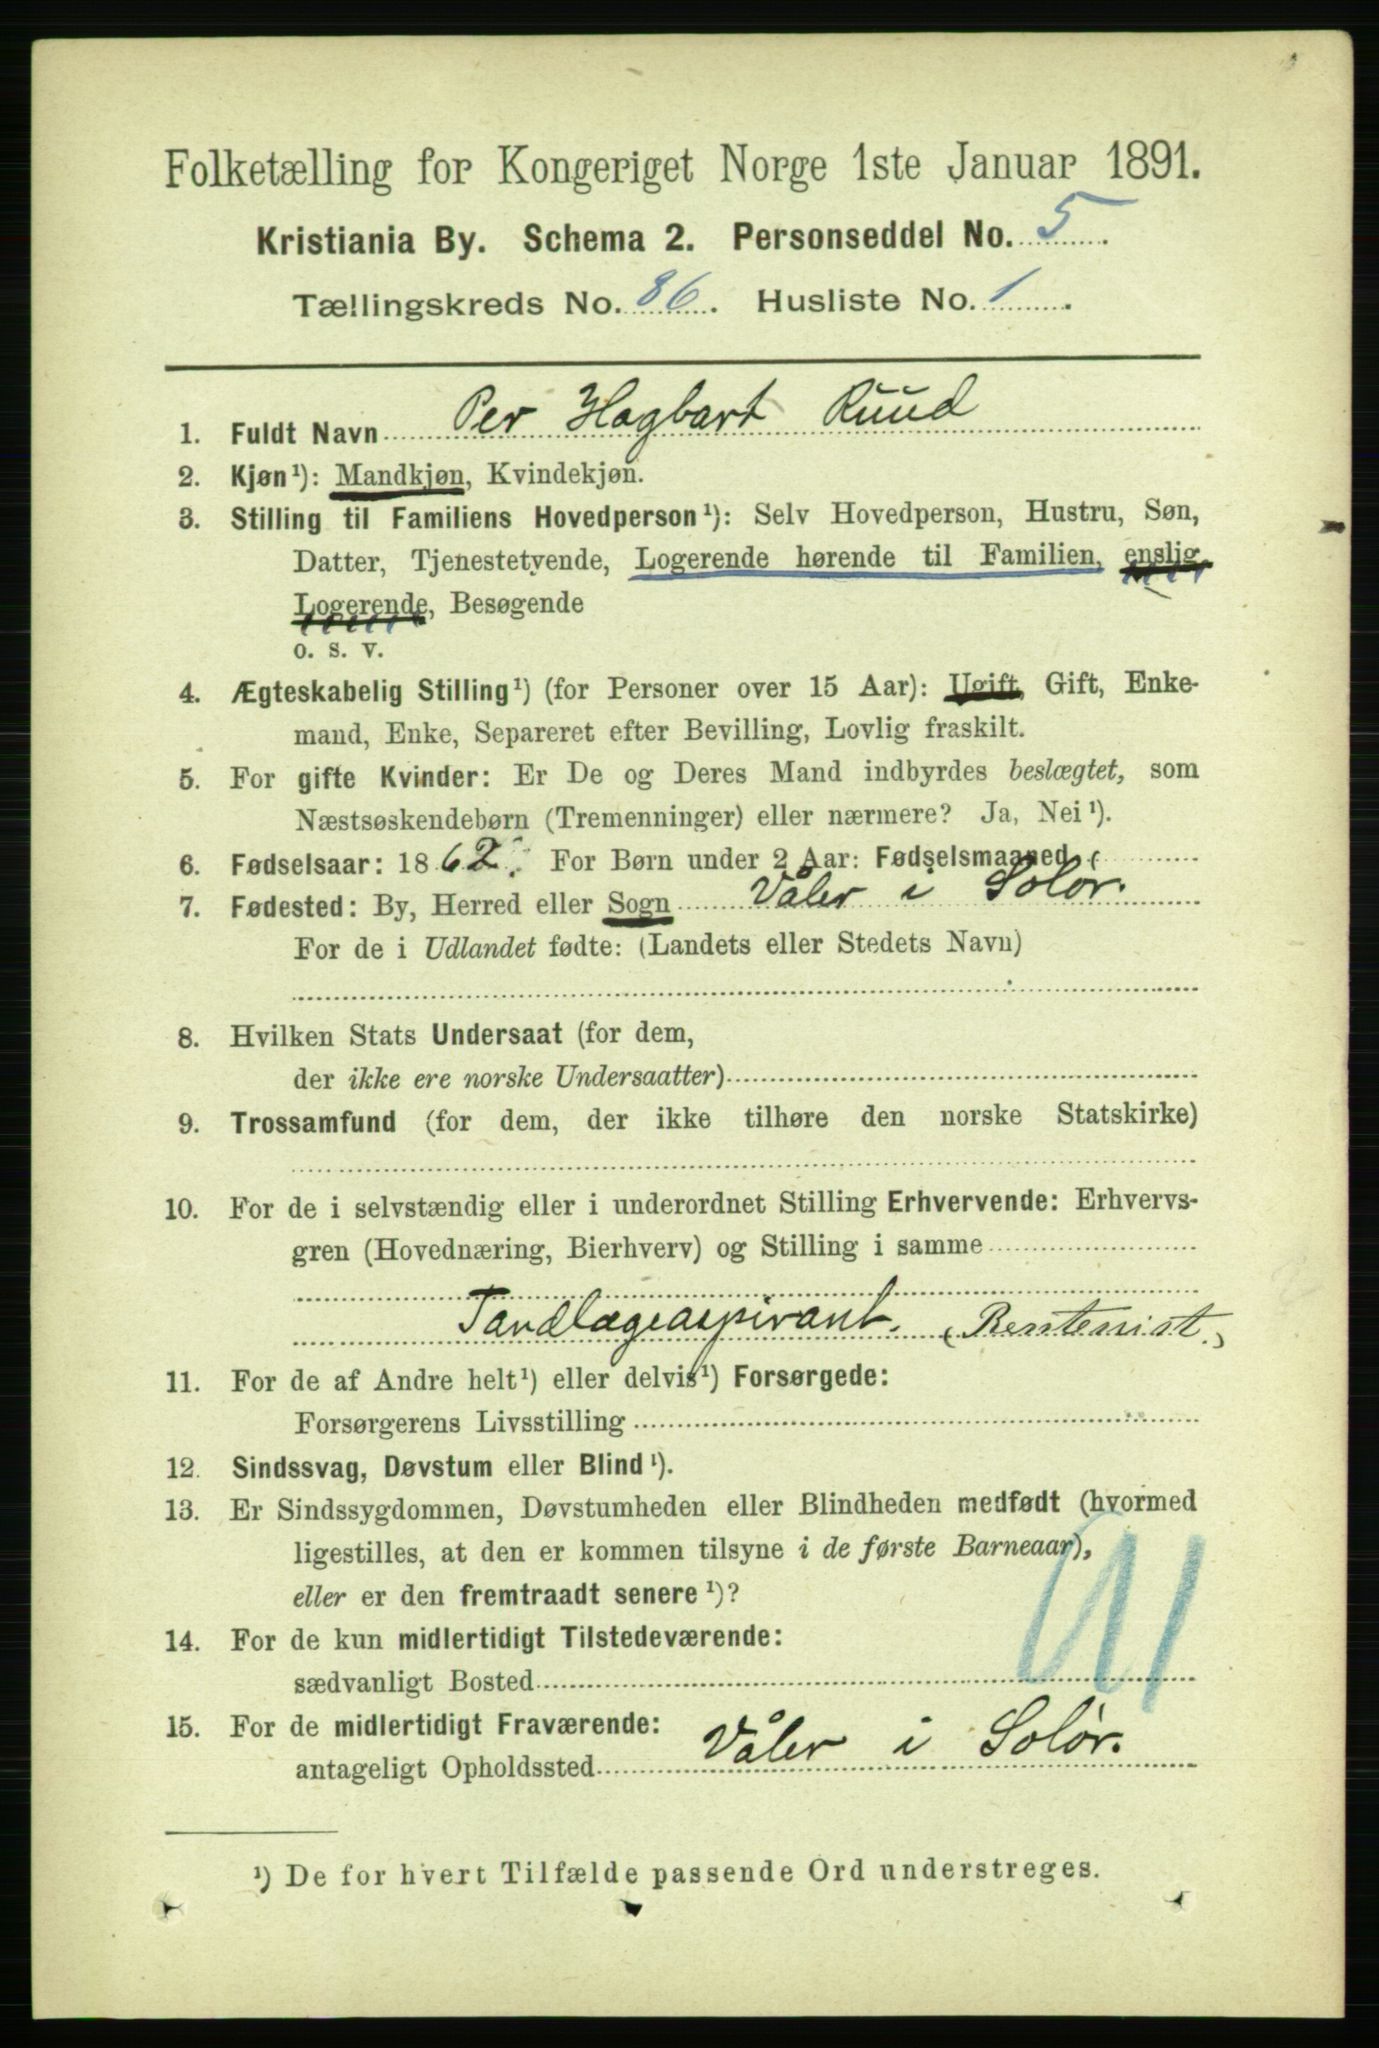 Folketælling for Kongeriget Norge 1ste Januar 1891.
Kristiania By. Schema 2. Personseddel No. 5
Tællingskreds No. 86. Husliste No. 1.
1. Fuldt Navn Per Hagbart Ruud
2. Kjøn¹): Mandkjøn, Kvindekjøn.
3. Stilling til Familiens Hovedperson¹): Selv Hovedperson, Hustru, Søn,
Datter, Tjenestetyende, Logerende hørende til Familien, enslig
Logerende, Besøgende
o. s. v.
4. Ægteskabelig Stilling¹) (for Personer over 15 Aar): Ugift, Gift, Enke-
mand, Enke, Separeret efter Bevilling, Lovlig fraskilt.
5. For gifte Kvinder: Er De og Deres Mand indbyrdes beslægtet, som
Næstsøskendebørn (Tremenninger) eller nærmere? Ja, Nei¹).
6. Fødselsaar: 1862. For Børn under 2 Aar: Fødselsmaaned
7. Fødested: By, Herred eller Sogn Våler i Solør.
For de i Udlandet fødte: (Landets eller Stedets Navn)
8. Hvilken Stats Undersaat (for dem,
der ikke ere norske Undersaatter)
9. Trossamfund (for dem, der ikke tilhøre den norske Statskirke)
10. For de i selvstændig eller i underordnet Stilling Erhvervende: Erhvervs-
gren (Hovednæring, Bierhverv) og Stilling i samme
Tandlægeaspirant. (Rentenist.)
11. For de af Andre helt¹) eller delvis¹) Forsørgede:
Forsørgerens Livsstilling
12. Sindssvag, Døvstum eller Blind¹).
13. Er Sindssygdommen, Døvstumheden eller Blindheden medfødt (hvormed
ligestilles, at den er kommen tilsyne i de første Barneaar),
eller er den fremtraadt senere¹)?
14. For de kun midlertidigt Tilstedeværende:
sædvanligt Bosted
15. For de midlertidigt Fraværende:
antageligt Opholdssted Våler i Solør.
¹) De for hvert Tilfælde passende Ord understreges.